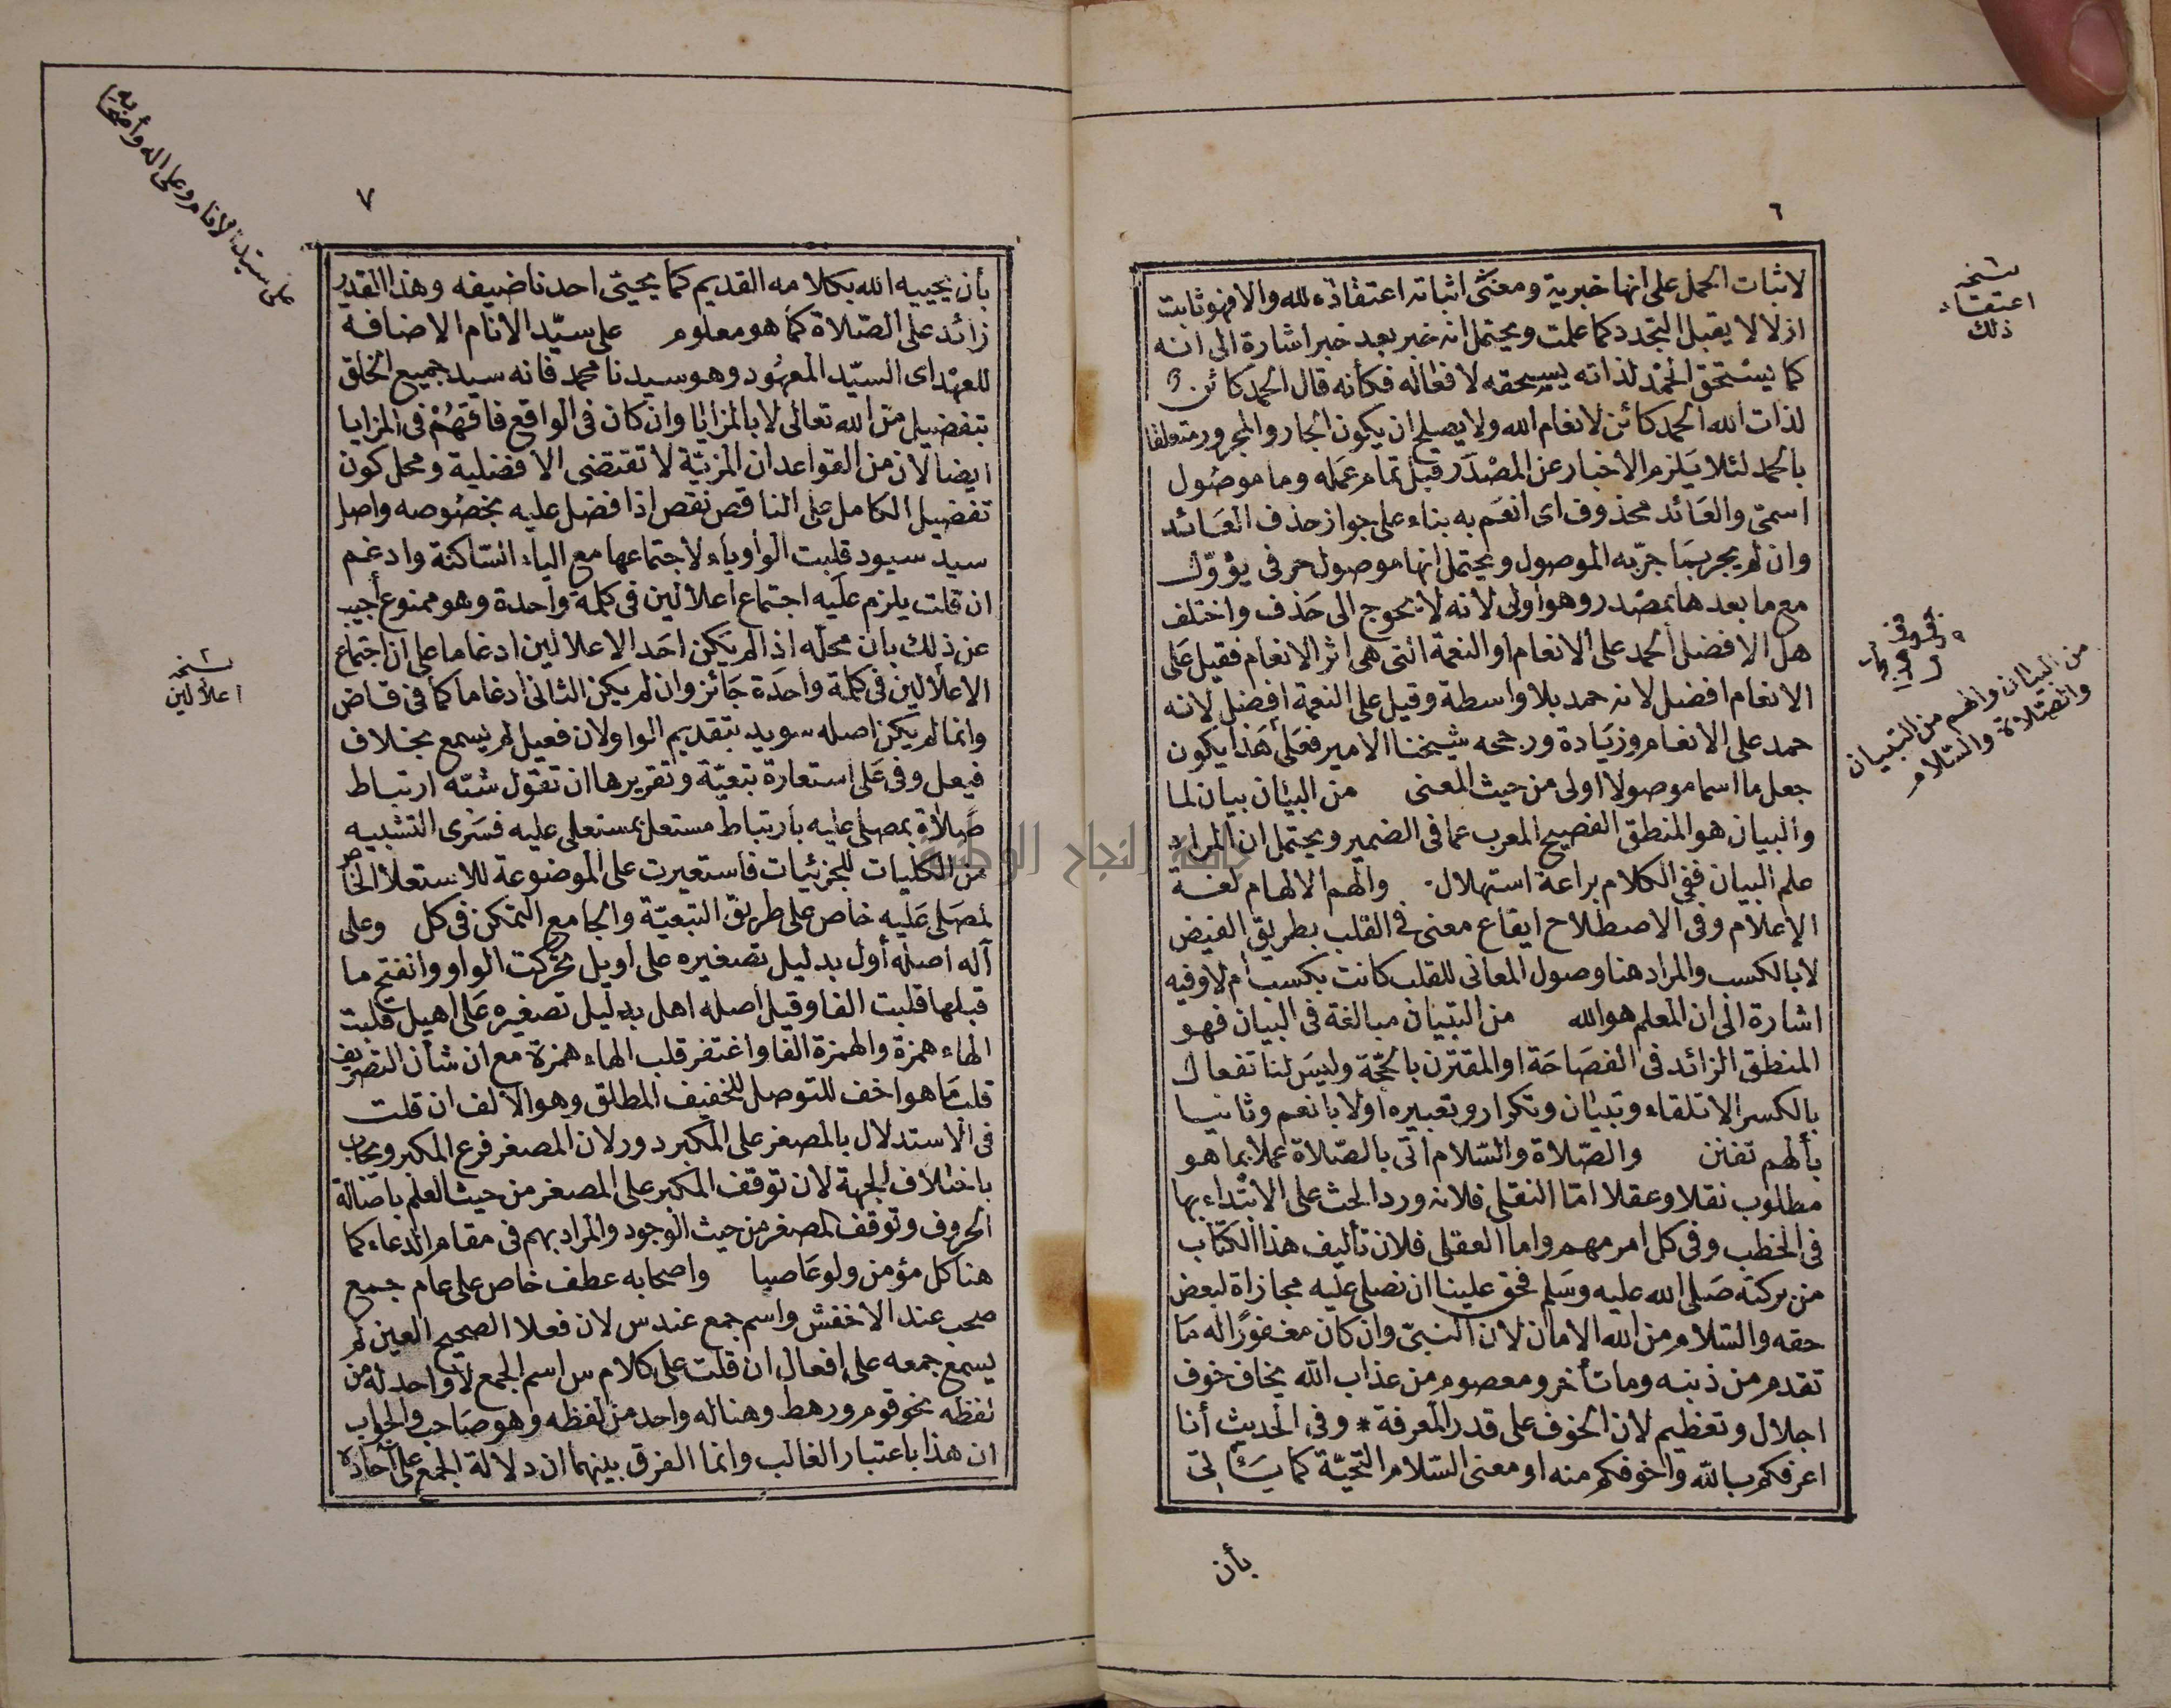 ٦
لاثبات الحمل على انها خبرية ومعنى اثباته اعتقاده لله والا فهو ثابت
ازلا لا يقبل التجدد كما علمت ويحتمل انه خبر بعد خبر اشارة الى انه
كما يستحق الحمد لذاته يستحقه لافعاله فكأنه قال الحمد كائن
لذات الله الحمد كائن لانعام الله ولا يصلح ان يكون الجار والمجرور متعلقا
بالحمد لئلا يلزم الاخبار عن المصدر قبل تمام عمله وما موصول
اسمى والعائد محذوف اى انعم به بناء على جواز حذف العائد
وان لم يجر بما جرّ به الموصول ويحتمل انها موصول حرفى يؤوّل
مع ما بعدها بمصدر وهو اولى لانه لا يحوج الى حذف واختلف
هل الافضل الحمد على الانعام او النعمة التى هى اثر الانعام فقيل على
الانعام افضل لانه حمد بلا واسطة وقيل على النعمة افضل لانه
حمد على الانعام وزيادة ورجحه شيخنا الامير فعلى هذا يكون
جعل ما اسما موصولا اولى من حيث المعنى من البيان بيان لما
والبيان هو المنطق الفصيح المعرب عما فى الضمير ويحتمل ان المراد
علم البيان ففى الكلام براعة استهلال والهم الالهام لغة
الاعلام وفى الاصطلاح ايقاع معنى فى القلب بطريق الفيض
لا بالكسب والمراد هنا وصول المعانى للقلب كانت بكسب ام لا وفيه
اشارة الى ان المعلم هو الله من التبيان مبالغة فى البيان فهو
المنطق الزائد فى الفصاحة او المقترن بالحجة وليس لنا تفعال
بالكسر الا تلقاء وتبيان وتكرار وتعبيره اولا بانعم وثانيا
بألهم تفنن والصّلاة والسّلام اتى بالصّلاة عملا بما هو
مطلوب نقلا وعقلا امّا النقلى فلانه ورد الحث على الابتداء بها
فى الخطب وفى كل امر مهم واما العقلى فلان تأليف هذا الكتاب
من بركته صلى الله عليه وسلم فحق علينا ان نصلى عليه مجازاة لبعض
حقه والسّلام من الله الامان لان النبىّ وان كان مغفورًا له ما
تقدم من ذنبه وما تأخر ومعصوم من عذاب الله يخاف خوف
اجلال وتعظيم لان الخوف على قدر المعرفة * وفى الحديث أنا
اعرفكم بالله واخوفكم منه او معنى السّلام التحيّة كما يسألتى
بأن
نسخه
اعتقاد
ذلك
من البيان والهم من التبيان
والصّلاة والسّلام
٧
بأن يحييه الله بكلامه القديم كما يحيّى احدنا ضيفه وهذا القدر
زائد على الصّلاة كما هو معلوم على سيّد الانام الاضافة
للعهد اى السيّد المعهود وهو سيدنا محمد فانه سيد جميع الخلق
بتفضيل من الله تعالى لا بالمزايا وان كان فى الواقع فاقهم فى المزايا
ايضا لان من القواعد ان المزيّة لا تقتضى الافضلية ومحل كون
تفضيل الكامل على الناقص نقص اذا فضل عليه بخصوصه واصل
سيد سيود قلبت الواو ياء لاجتماعها مع الياء السّاكنة وادغم
ان قلت يلزم عليه اجتماع اعلالين فى كلمة واحدة وهو ممنوع أجيب
عن ذلك بان محلّه اذا لم يكن احد الاعلالين ادغاما على ان اجتماع
الاعلالين فى كلمة واحدة جائز وان لم يكن الثانى ادغاما كما فى قاض
وانما لم يكن اصله سويد بتقديم الواو لان فعيل لم يسمع بخلاف
فيعل وفى على استعارة تبعيّة وتقريرها ان تقول شبّه ارتباط
صلاة بمصلى عليه بارتباط مستعل بمستعلى عليه فسرى التشبيه
من الكليات للجزئيات فاستعيرت على الموضوعة للاستعلا الخاص
لمصلى عليه خاص على طريق التبعيّة والجامع التمكن فى كل وعلى
آله اصله أول بدليل تصغيره على اويل تحركت الواو وانفتح ما
قبلها قلبت الفا وقيل اصله اهل بدليل تصغيره على اهيل قلبت
الهاء همزة والهمزة الفا واغتفر قلب الهاء همزة مع ان شأن التصريف
قلب ما هو اخف للتوصل للخفيف المطلق وهو الالف ان قلت
فى الاستدلال بالمصغر على المكبر دور لان المصغر فرع المكبر ويجاب
باختلاف الجهة لان توقف المكبر على المصغر من حيث العلم باصالة
الحروف وتوقف المصغر من حيث الوجود والمراد بهم فى مقام الدعاء كما
هنا كل مؤمن ولو عاصيا واصحابه عطف خاص على عام جمع
صحب عند الاخفش واسم جمع عند س لان فعلا الصحيح العين لم
يسمع جمعه على افعال ان قلت على كلام س اسم الجمع لا واحد له من
لفظه نحو قوم ورهط وهنا له واحد من لفظه وهو صاحب والجواب
ان هذا باعتبار الغالب وانما الفرق بينهما ان دلالة الجمع على آحاده
على سيّد الانام وعلى اله وأصحابه
نسخه
اعلالين
جامعة النجاح الوطنية